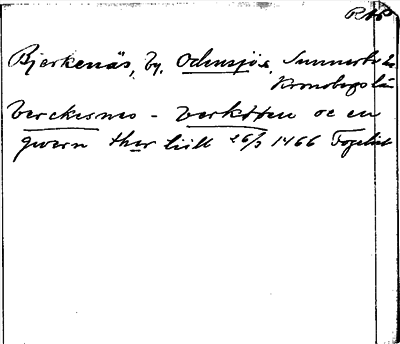 RAP
Bjerkenäs, by, Odensjö s., Sunnerbo h.
Kronobergs län
berckesnes - berkøtten oc en
qwern ther till 26/3 1466 Fogelvik